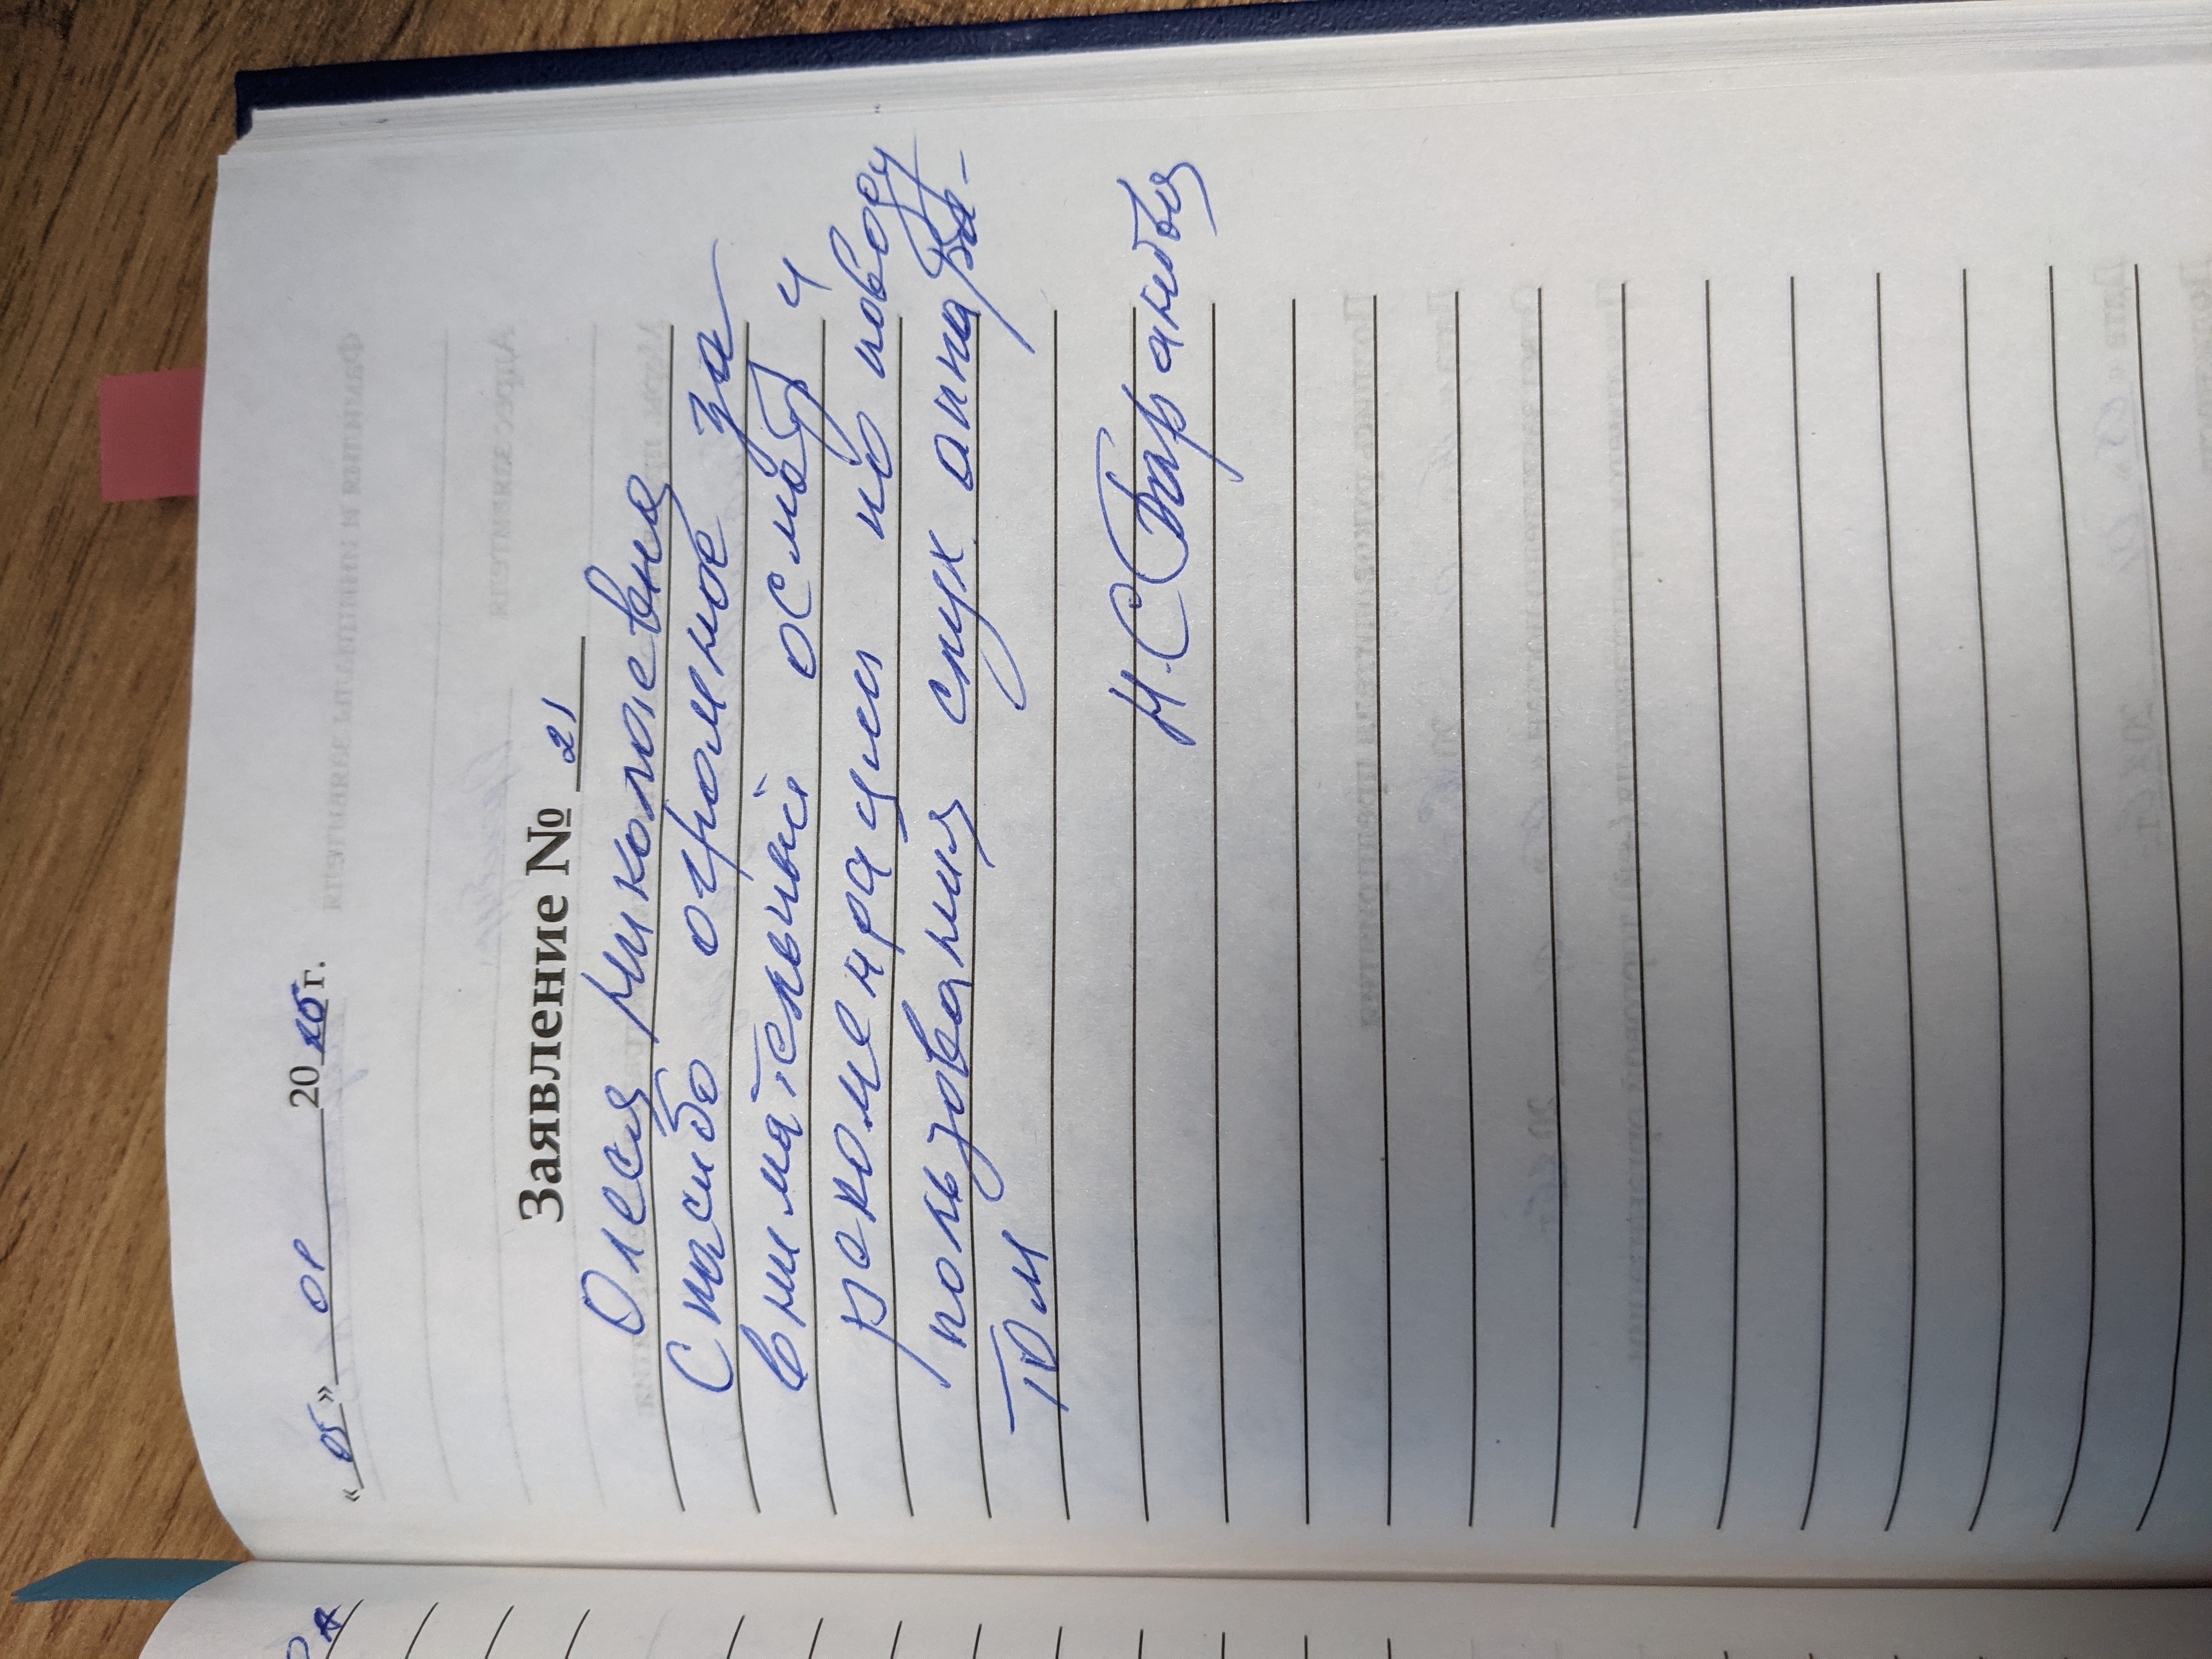 «05» 01 20 г.
Заявление № 21
Олеся Николаевна
Спасибо огромное за
внимательный осмотр и
рекомендации по поводу
пользования слух. аппара-
том
Н.С.